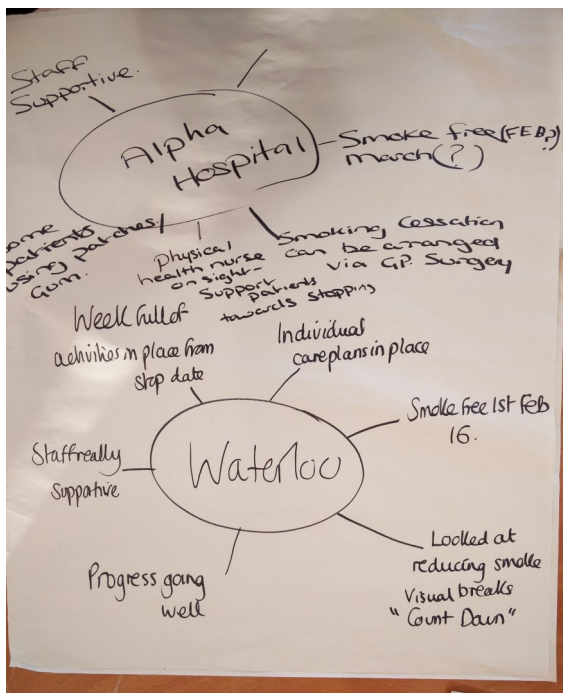 Staff
Supportive.
Alpha
Hospital
Smoke free (FEB?)
March (?)
ome
patients
using patches/
Gum.
Physical
health nurse
on sight -
Support
patients
towards stopping
Smoking Cessation
can be arranged
via G.P. Surgery
Week full of
activities in place from
stop date
Individual
care plans in place
Waterloo
Smoke free 1st Feb
16.
Staff really
Supportive
Progress going
well
Looked at
reducing smoke
Visual breaks
"Count Down"